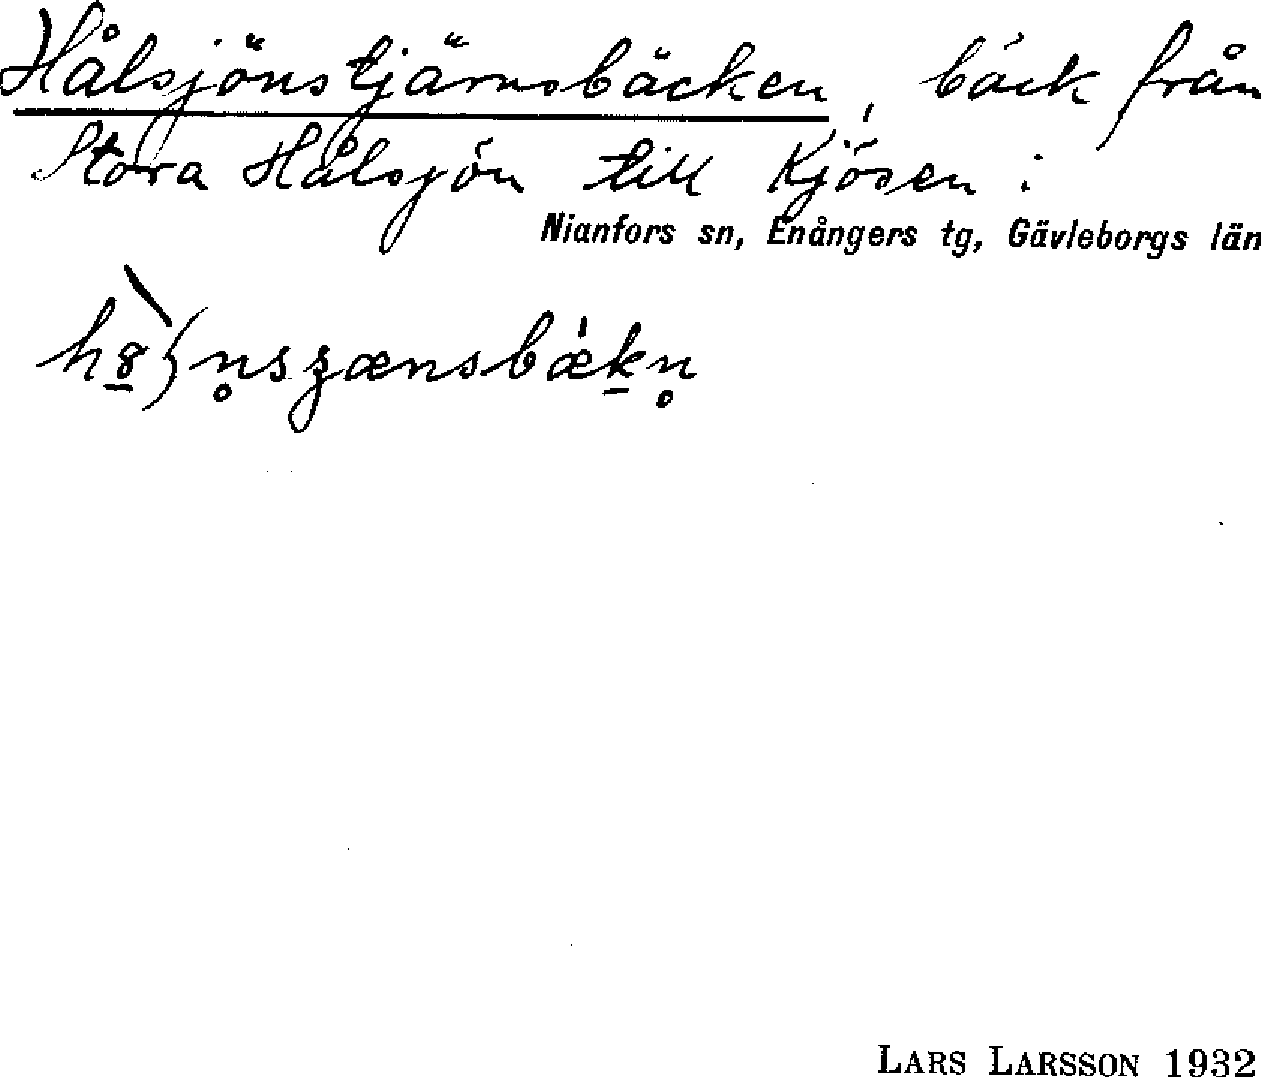 Hålsjönstjärnsbäcken, bäck från
Stora Hålsjön till Kjösen i
Nianfors sn, Enångers tg, Gävleborgs län
LARS LARSSON 1932